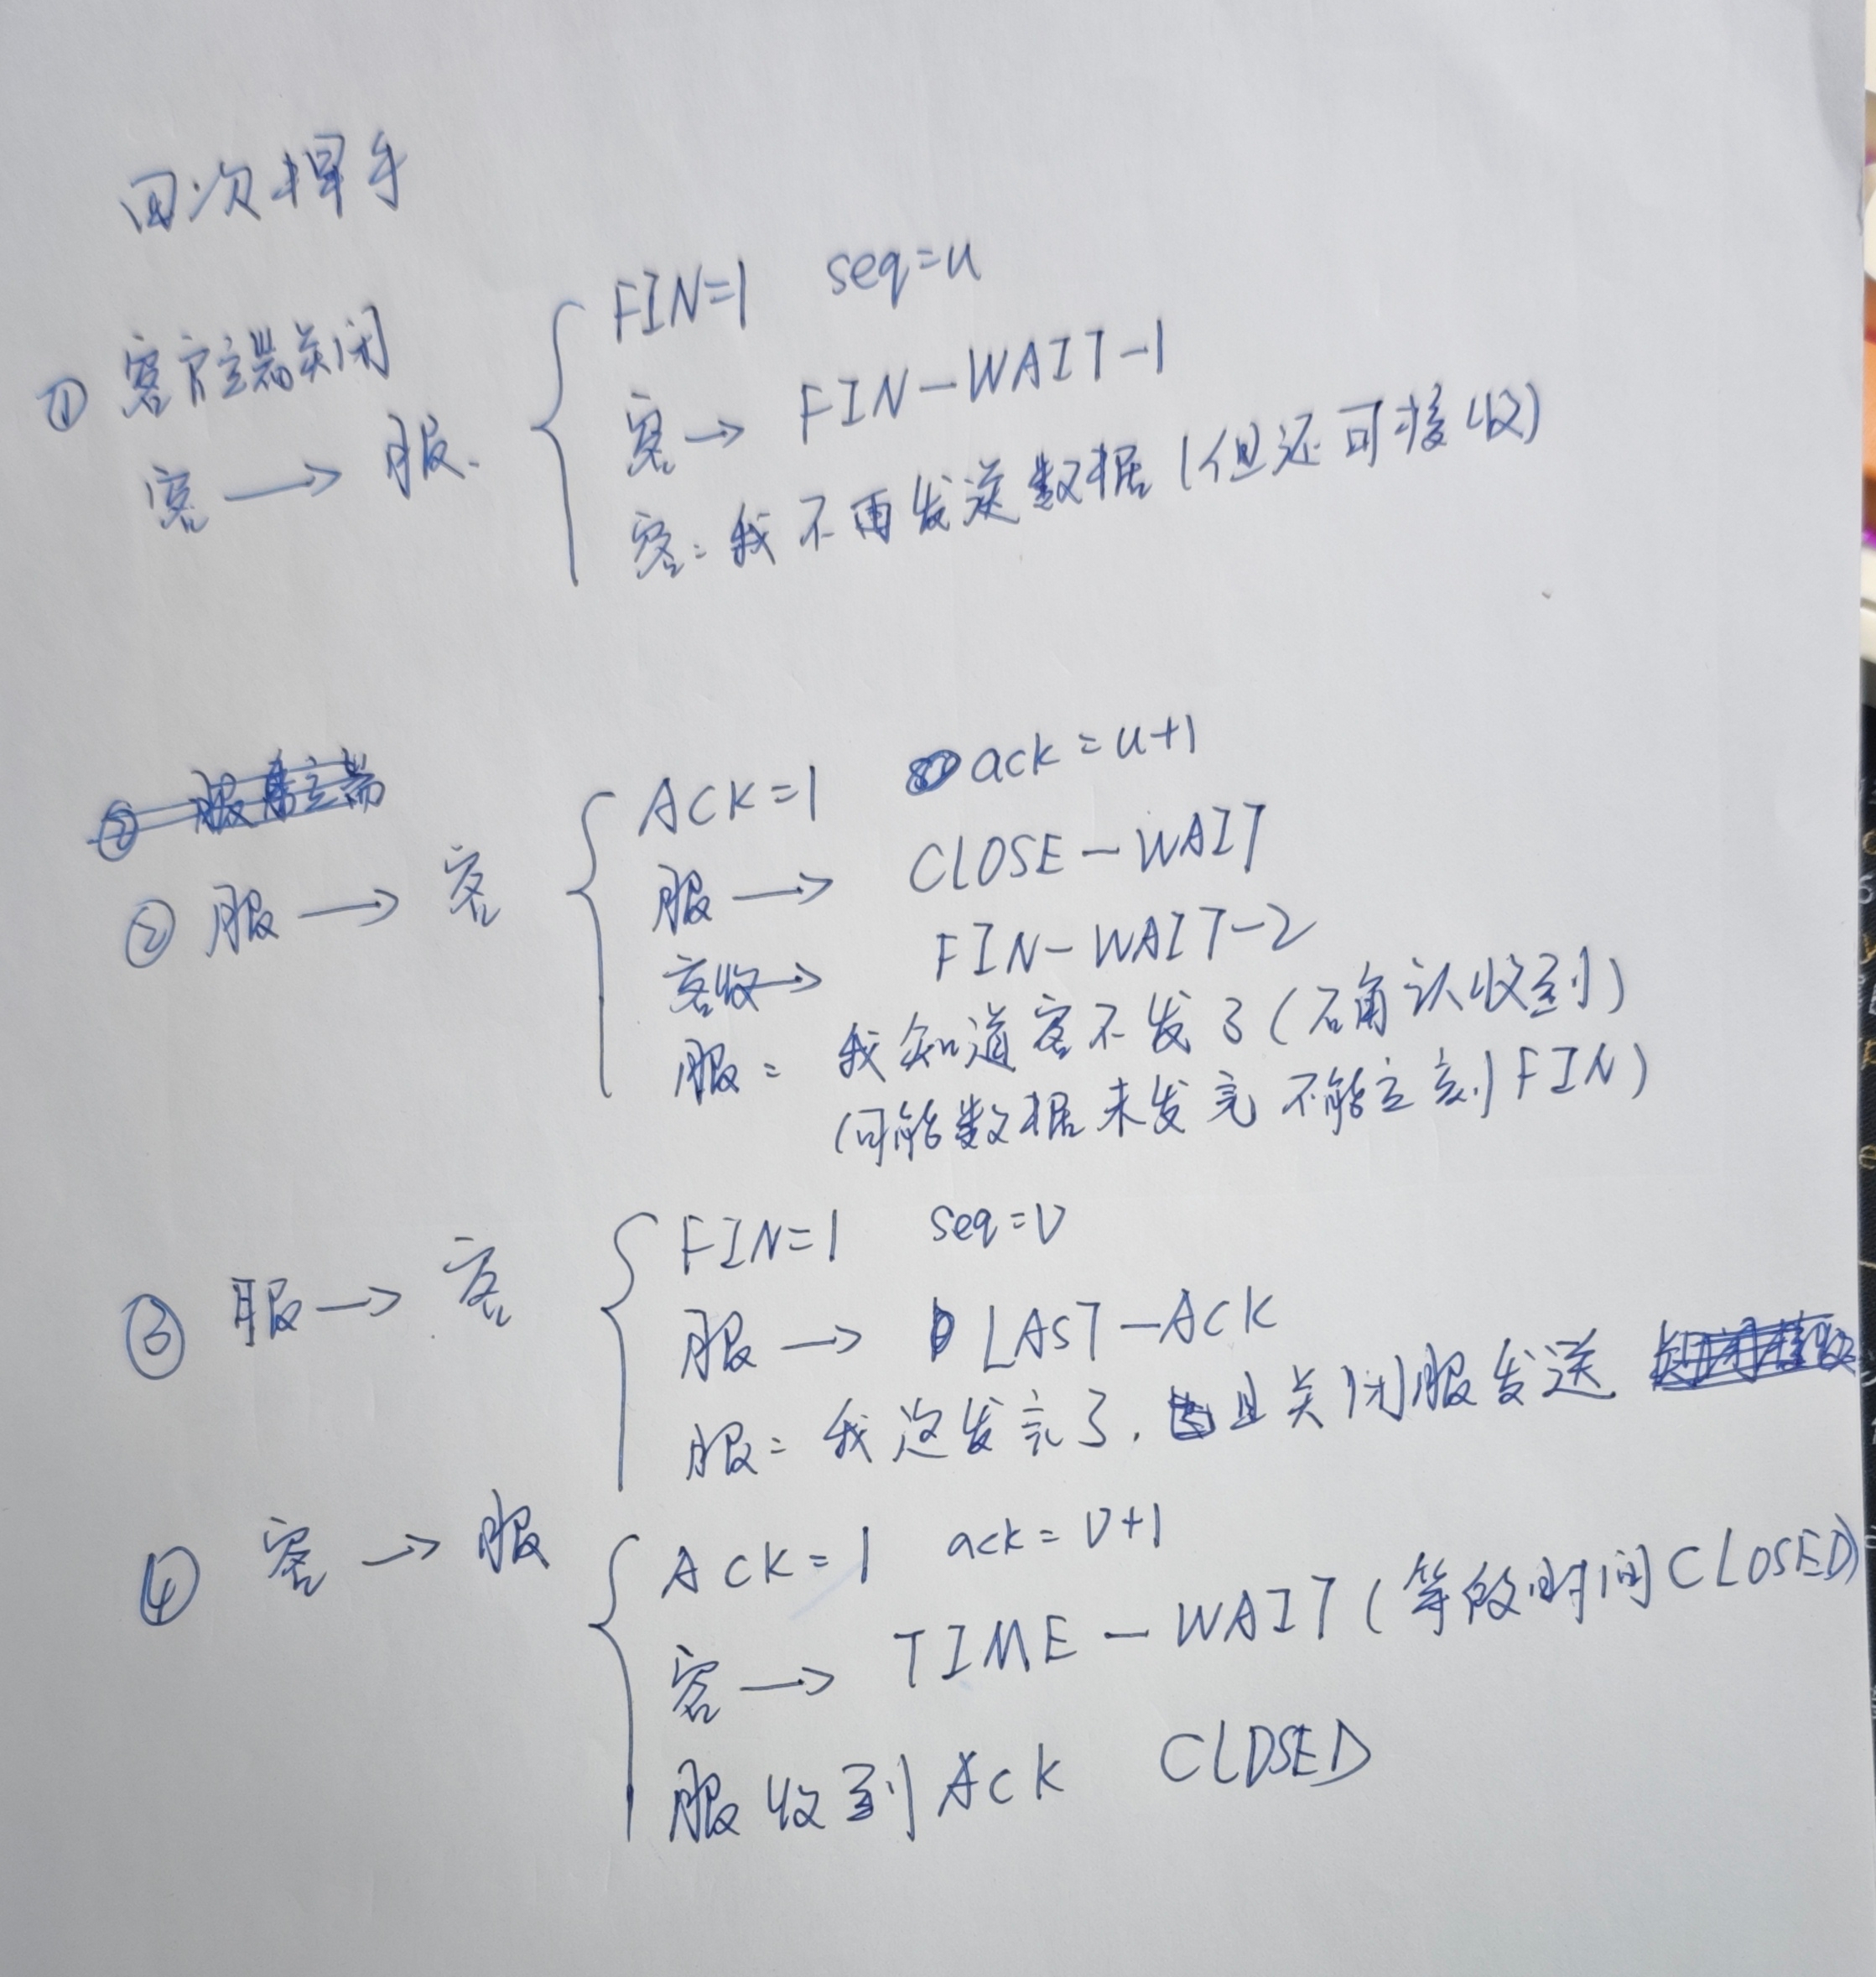 四次挥手
① 客户端关闭
客 → 服.
FIN=1 seq=u
客 → FIN-WAIT-1
客: 我不再发送数据 (但还可接收)
② 服务端
② 服 → 客
ACK=1 ack=u+1
服 → CLOSE-WAIT
客收 → FIN-WAIT-2
服: 我知道客不发了 (确认收到)
(可能数据未发完 不能立刻FIN)
③ 服 → 客
FIN=1 seq=v
服 → LAST-ACK
服: 我发完了, 且关闭服发送
④ 客 → 服
ACK=1 ack=v+1
客 → TIME-WAIT (等段时间CLOSED)
服收到ACK CLOSED